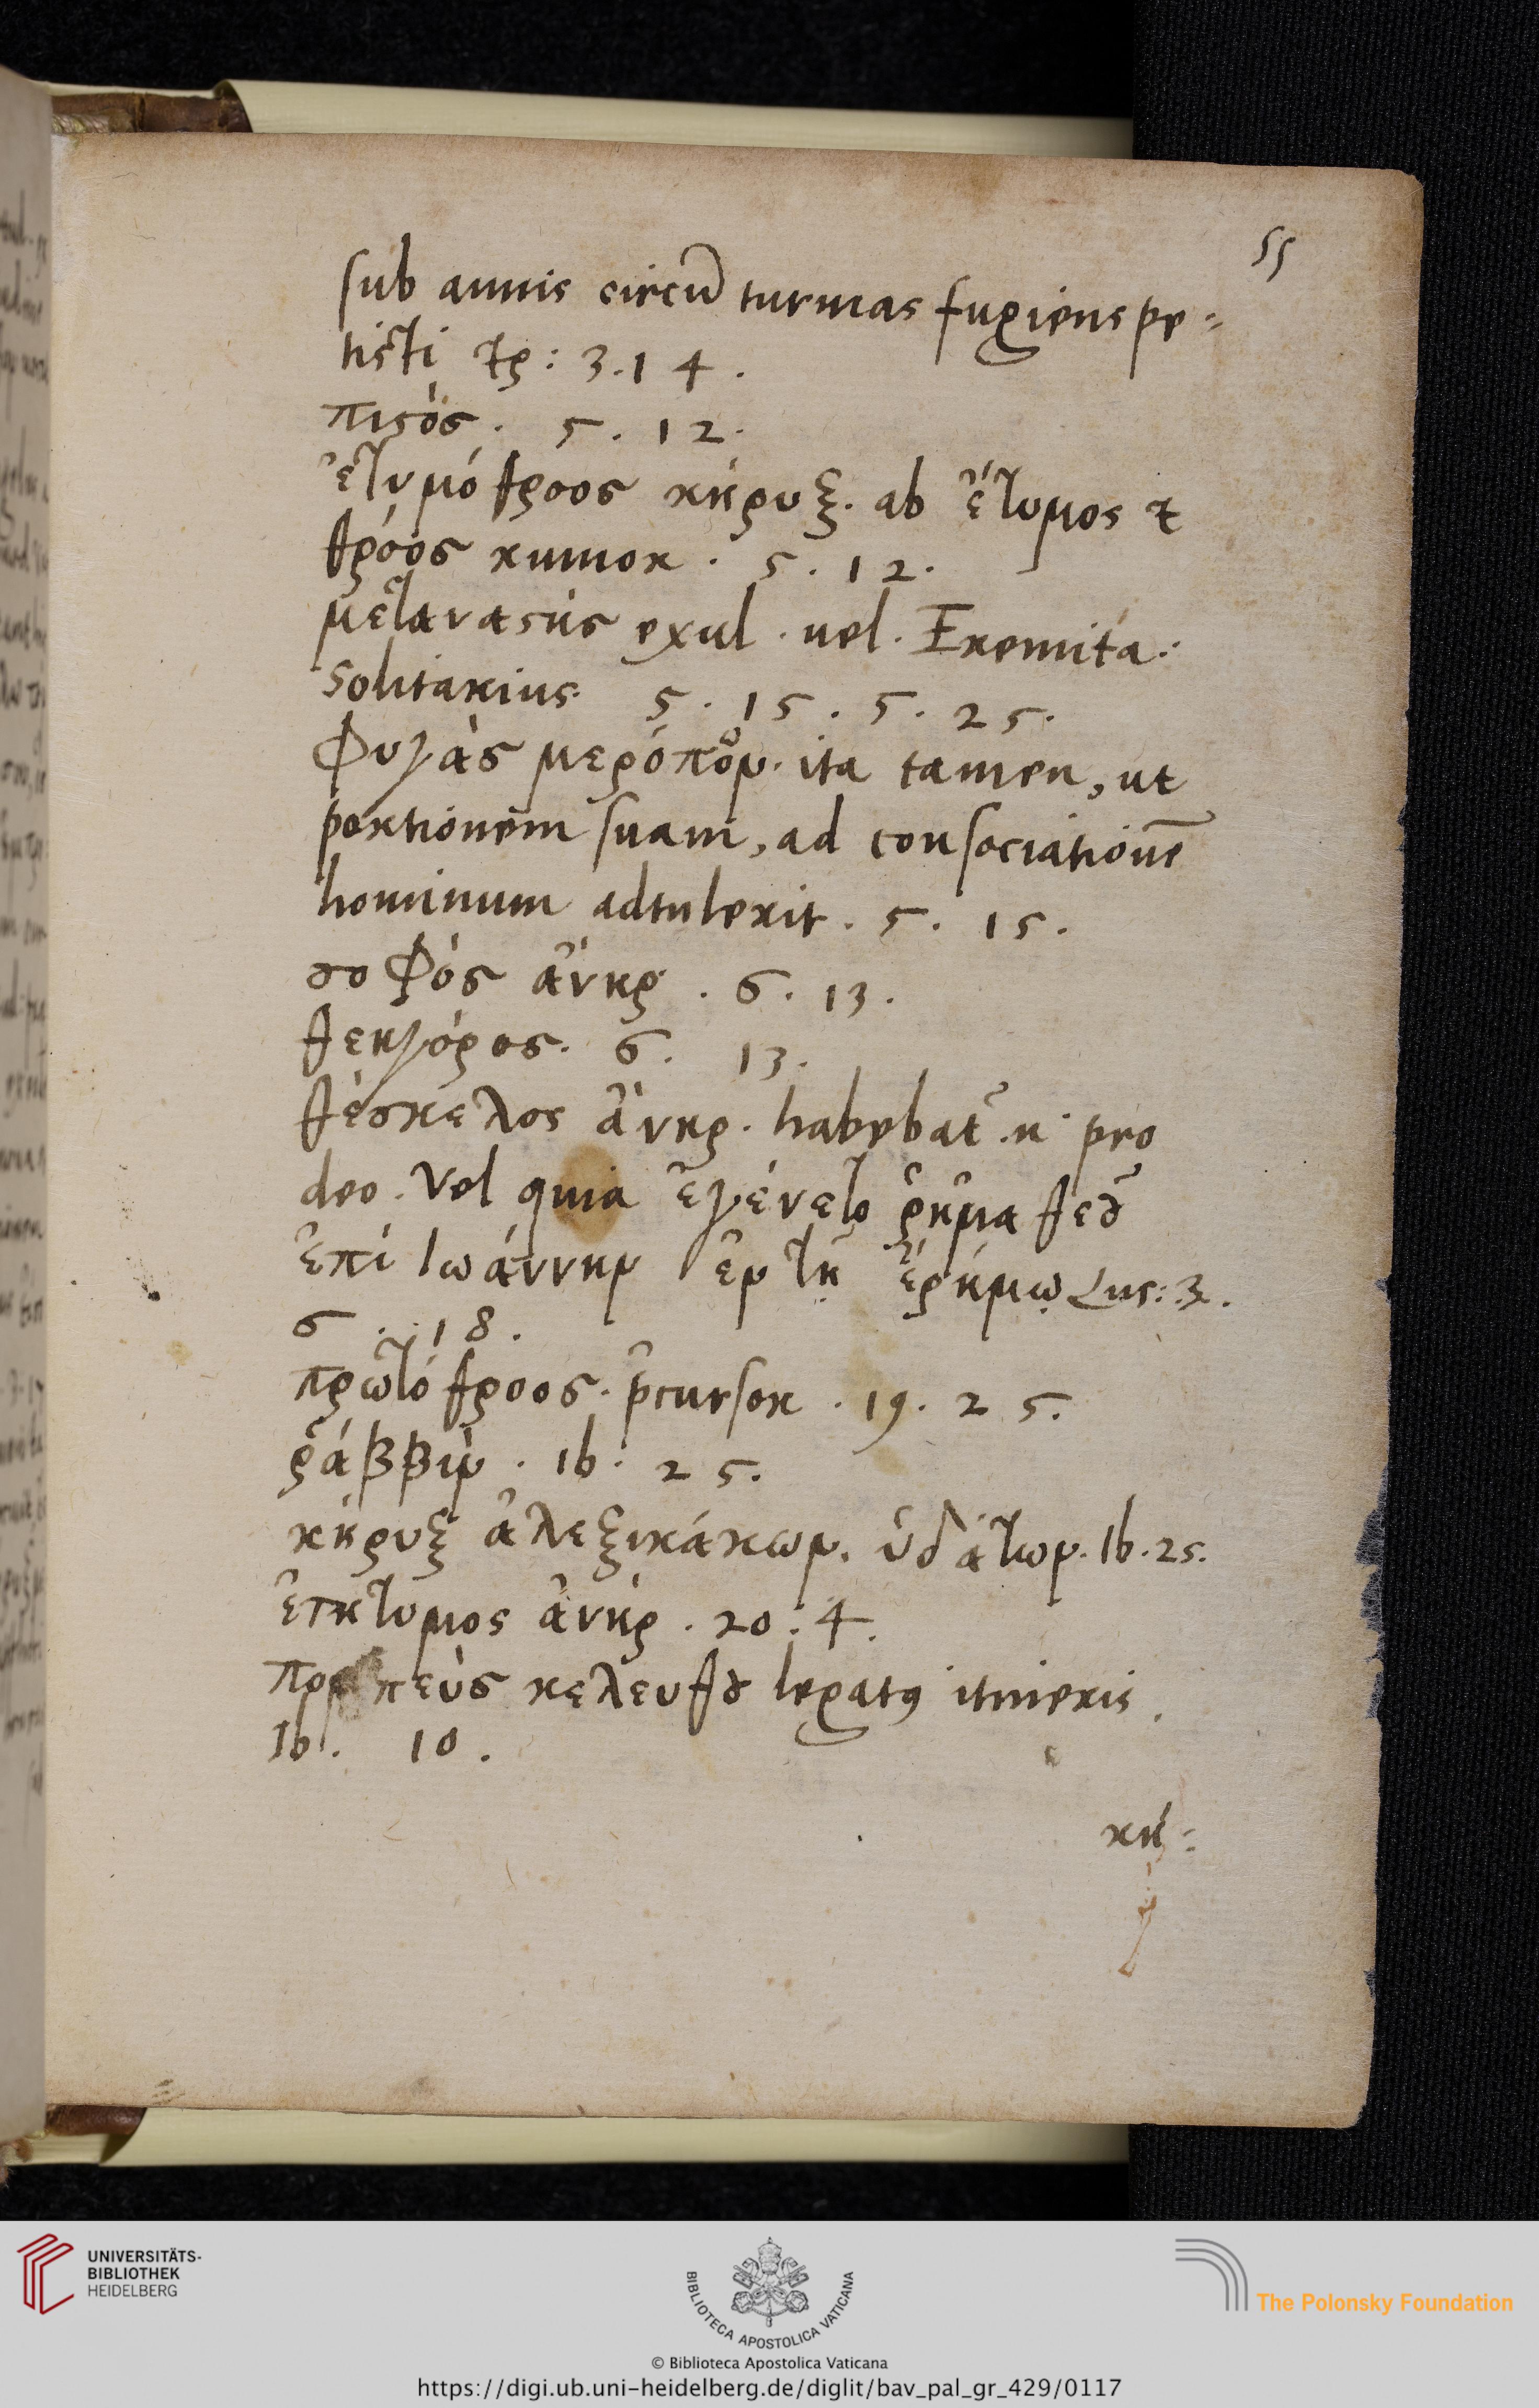 55
sub annis circũ turmas fugiens pe=
tisti : 3. 1 4.
πιϛός. 5. 12.
ἐτυμόθροος κήρυξ. ab ἔτυμος &
θρόος rumor. 5. 12.
μετανάϛης exul. uel. Eremita.
solitarius. 5. 15. 5. 25.
Φυγὰς μερόπων. ita tamen, ut
portionem suam, ad consociationẽ
hominum adtulerit. 5. 15.
σοφός ἀνήρ. 6. 13.
θεηγόρος. 6. 13.
θέσκελος ἀνήρ. habebat᷑. n. pro
deo. Vel quia ἐγένετο ῥῆμα θεοῦ
ἐπί Ιωάννην ἐν τῇ ἐρήμῳ Luc: 3.
6. 18.
πρωτόθροος. p̃cursor. 19. 25.
ῥάββιν. Ib. 25.
κήρυξ ἀλεξικάκων. ὑδάτων. Ib. 25.
ἐπήτυμος ἀνήρ. 20. 4.
κελεύθου legatꝰ itineris.
Ib. 10.
κή=
UNIVERSITÄTS-
BIBLIOTHEK
HEIDELBERG
BIBLIOTECA APOSTOLICA VATICANA
The Polonsky Foundation
© Biblioteca Apostolica Vaticana
https://digi.ub.uni-heidelberg.de/diglit/bav_pal_gr_429/0117